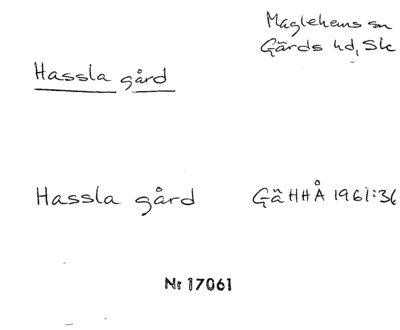 Maglehems sn
Gärds hd, Sk
Hassla gård
Hassla gård GäHHÅ 1961:36
Nr 17061